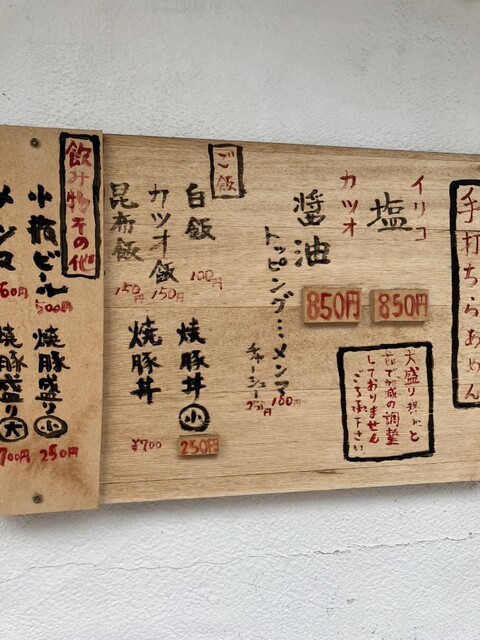 手打ちらあめん
イリコ
塩
850円
カツオ
醤油
850円
トッピング…メンマ
160円
チャーシュー
250円
大盛り
茹で加減の調整
しておりません
ご了承下さい
ご飯
白飯
100円
カツオ飯
150円
昆布飯
150円
焼豚丼小
250円
焼豚丼
¥700
飲み物その他
小瓶ビール
500円
メンマ
160円
焼豚盛り小
250円
焼豚盛り大
700円